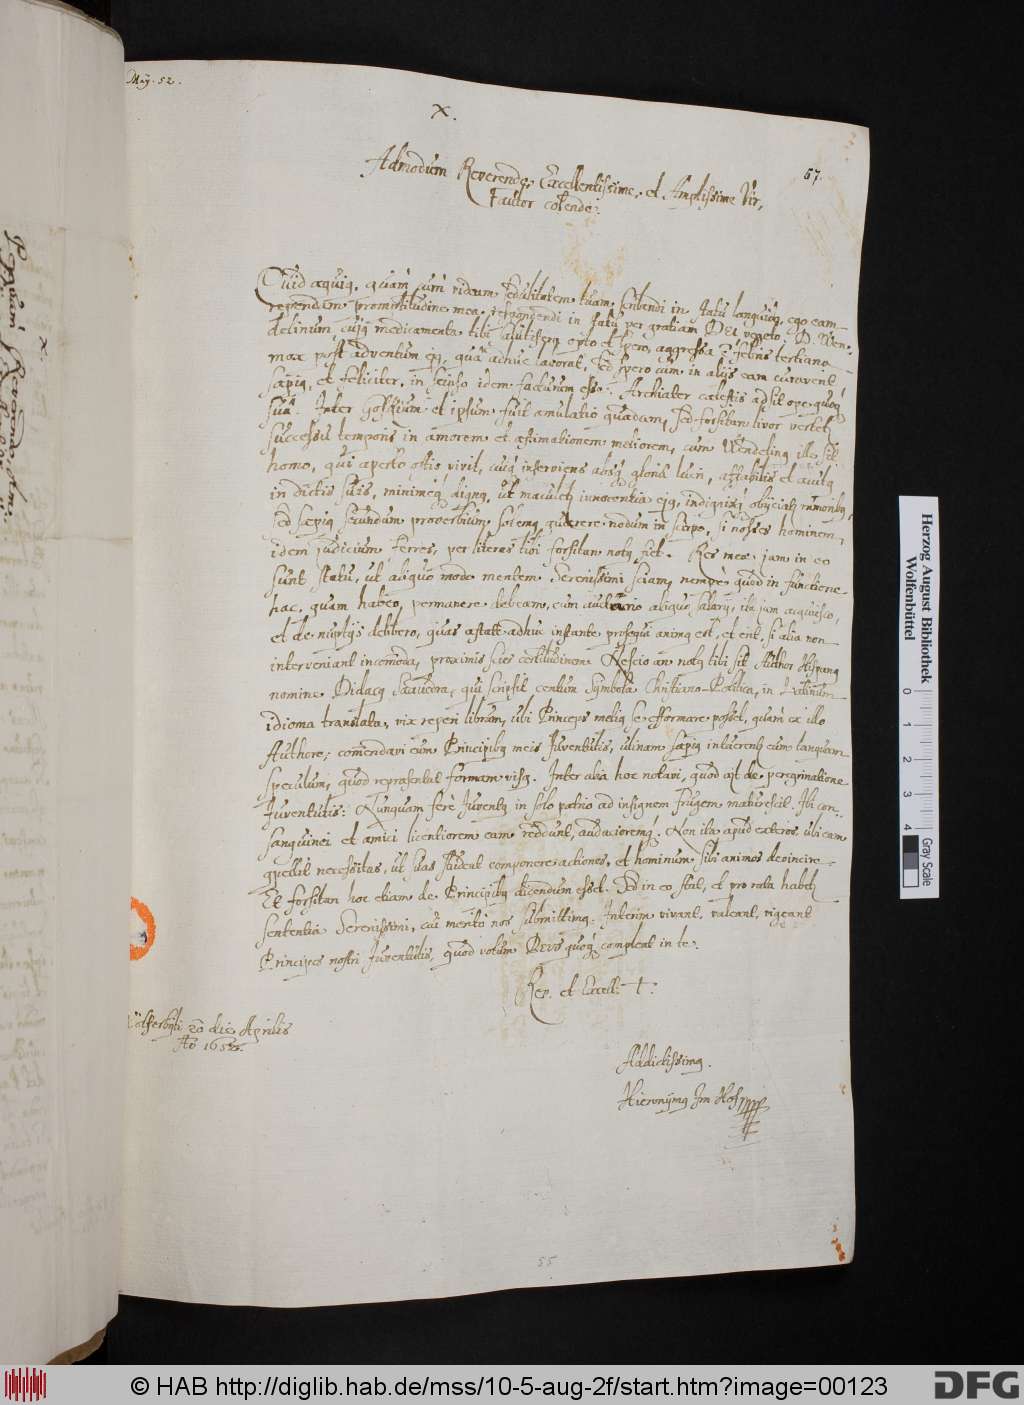 Maÿ. 52.
X.
67.
Admodum Reverende, Excellentissime, et Amplissime Vir,
Fautor colende.
Quid aquiq, quam cum videam sedulitatem tuam scribendi in statu languoq, ego eam-
repondam promptitudine mea, respondendi in statu per gratiam DEI vegeto. D. Wen-
delinum, cujq medicamenta tibi salutifera opto et spero, aggressa ē febris tertiana
mox post adventum ejq, quâ adhuc laborat, sed spero cum in alijs eam curaverit
saepiq, et feliciter, in seipso idem facturum esse. Archiater caelestis adsit ope quoq
suâ. Inter Gosskium et ipsum fuit aemulatio quaedam, sed forsitan livor vertet
successu temporis in amorem et aestimationem meliorem, cum Wendelinq ille sit
homo, qui aperto ostio vivit, cuiq inserviens absq gloriâ lucri, affabilis et
in dictis suis, minimeq dignq, ut maculetr innocentia ejq, indignisq objiciatr rumoribq,
sed saepiq secundum proverbium solemq quaerere nodum in scirpo, si nosses hominem,
idem judicium ferres, per literas tibi forsitan notq fiet. Res meae jam in eo
sunt statu, ut aliquo modo mentem Serenissimi sciam, nempè quod in functione
hac, quam habeo, permanere debeam, cum auctario aliquo salarij, ita jam acquiesco,
et de nuptijs delibero, quas aestate adhuc instante prosequi animq est, et erit, si alia non
interveniant incommoda, proximis scies certitudinem. Nescio an notq tibi sit Author Hispanq
nomine Didacq Saavedra, qui scripsit centum Symbola Christiano-Politica, in Latinum
idioma translata, vix reperi librum, ubi Princeps meliq se efformare posset, quàm ex illo
Authore, commendavi eum Principibq meis Juventutis, utinam saepiq intuerentr eum tanquam
speculum, quod repraesentat formam visq. Inter alia hoc notavi, quod ait de peregrinatione
Juventutis: Nunquam ferè Juventq in solo patrio ad insignem frugem maturescit. Ibi con-
sanguinei et amici licentiorem eam reddunt, audacioremq. Non ita apud exteros, ubi eam
necessitas, ut suas studeat componere actiones, et hominum sibi animos devincire.
Et forsitan hoc etiam de Principibq dicendum esset. Sed in eo stat, et pro rata habetr
sententia Serenissimi, cui meritò nos submittimq. Interim vivant, valeant, vigeant
Principes nostri Juventutis, quod votum DEUS quoq compleat in te.
Rev. et Excell. T.
die Aprilis
Aō 165
Addictissimq.
Hieronÿmq Im Hof
55
Herzog August Bibliothek
Wolfenbüttel
0 1 2 3 4
Gray Scale
© HAB http://diglib.hab.de/mss/10-5-aug-2f/start.htm?image=00123
DFG